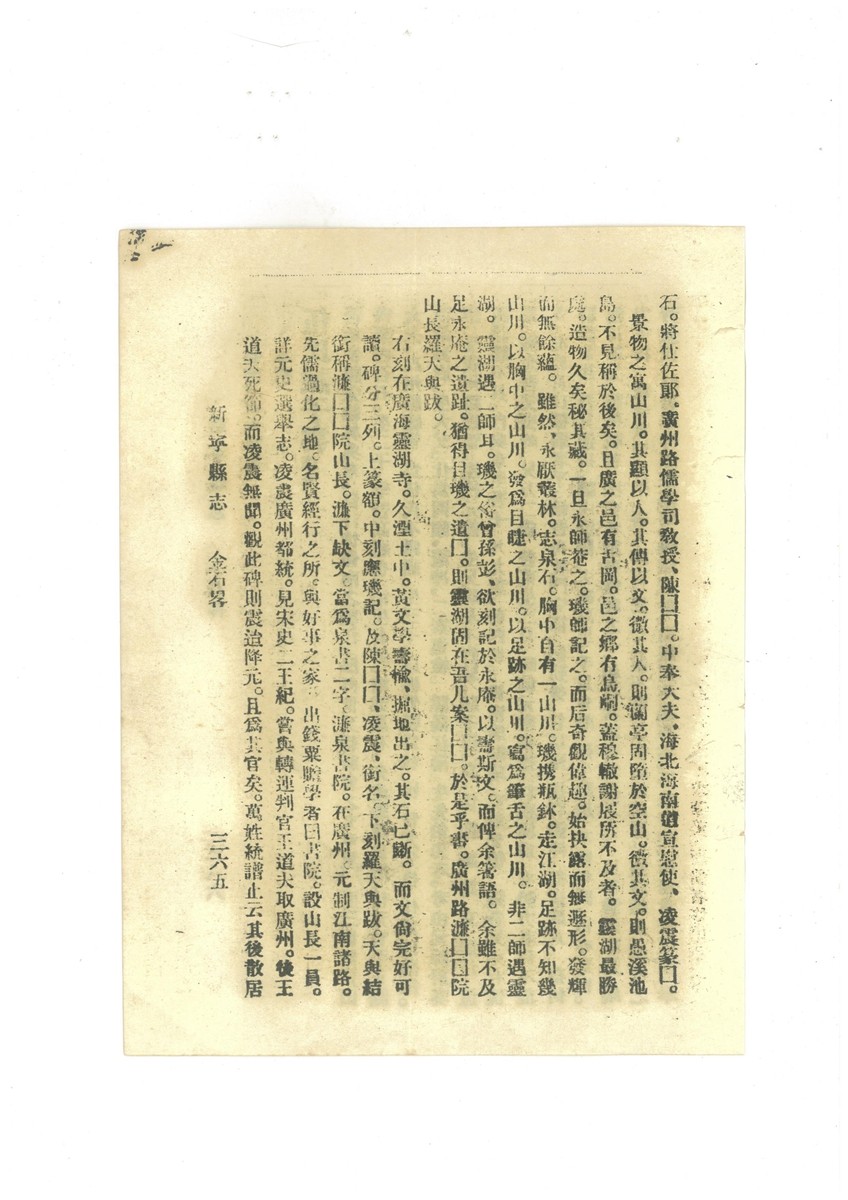 石。將仕佐郎。廣州路儒學司教授、陳囗囗。中奉大夫、海北海南道宣慰使、凌震篆囗。
景物之寓山川。其顯以人。其傳以文。微其人。則蘭亭固堕於空山。微其文。則愚溪池
島。不見稱於後矣。且廣之邑有古岡。邑之鄉有島嗣。蓋穆轍謝屐所不及者。靈湖最勝
處。造物久矣秘其藏。一旦永師菴之。璣師記之。而后奇觀偉趣。始抉露而無遯形。發輝
而無餘蘊。雖然、永厭叢林。志泉石。胸中自有一山川。璣携瓶鉢。走江湖。足跡不知幾
山川。以胸中之山川。發爲目睫之山川。以足跡之山川。寫爲筆舌之山川。非二師遇靈
湖。靈湖遇二師耳。璣之俗曾孫彭、欲刻記於永庵。以壽斯文。而俾余箸語。余雖不及
足永庵之遺趾。猶得目璣之遺囗。則靈湖固在吾几案囗囗。於是乎書。廣州路濂囗囗院
山長羅天與跋。
右刻在廣海靈湖寺。久湮土中。黃文學壽楡、掘地出之。其石已斷。而文尙完好可
讀。碑分三列。上篆額。中刻應璣記。及陳囗囗、凌震、銜名。下刻羅天與跋。天與結
銜稱濂囗囗院山長。濂下缺文。當爲泉書二字。濂泉書院。在廣州。元制江南諸路。
先儒過化之地。名賢經行之所。與好事之家、出錢粟贍學者曰書院。設山長一員。
詳元史選舉志。凌震廣州都統。見宋史二王紀。嘗與轉運判官王道夫取廣州。後王
道夫死節。而凌震無聞。觀此碑則震迨降元。且爲其官矣。萬姓統譜止云其後散居
新寧縣志 金石畧 三六五